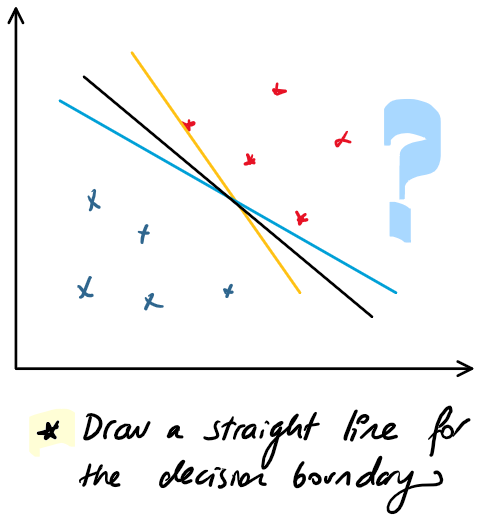 ?
* Draw a straight line for
the decision boundary